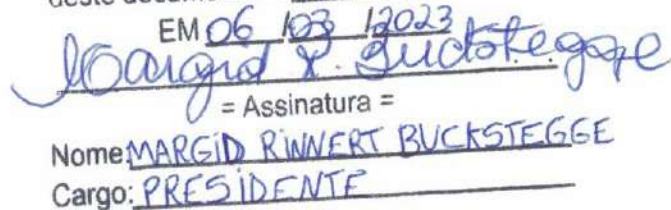 deste docume
EM 06 / 03 / 2023
Margid R. Buckstegge
= Assinatura =
Nome: MARGID RINNERT BUCKSTEGGE
Cargo: PRESIDENTE